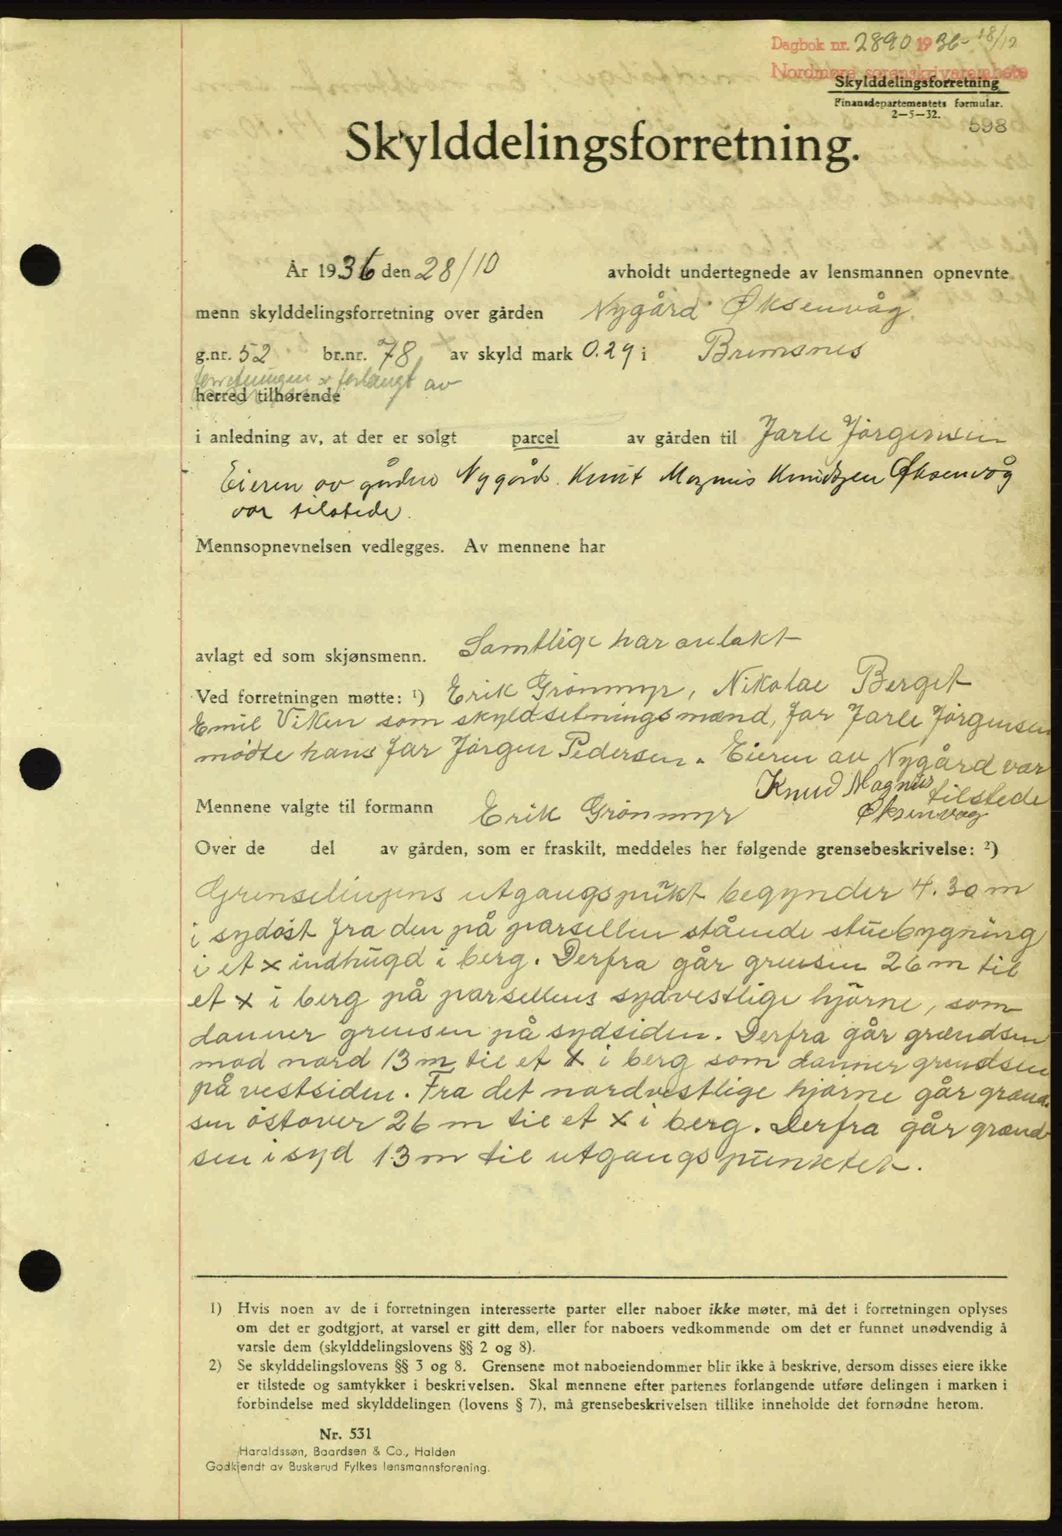 Dagbok nr. 2890 1936 18/12
Nordmøre sorenskriverembete
Skylddelingsforretning
Finansdepartementets formular.
2—5—32.
598
Skylddelingsforretning.
År 1936 den 28/10 avholdt undertegnede av lensmannen opnevnte
menn skylddelingsforretning over gården Nygård Øksenvåg
g.nr. 52 br.nr. 78 av skyld mark 0.29 i Bremsnes
forretningen er forlangt av
herred tilhørende
i anledning av, at der er solgt parcel av gården til Jarle Jørgensen
Eieren av gården Nygård Knut Magnus Knudtzen Øksenvåg
var tilstede.
Mennsopnevnelsen vedlegges. Av mennene har
avlagt ed som skjønsmenn. Samtlige har avlakt
Ved forretningen møtte: ¹) Erik Grønmyr, Nikolai Berget
Emil Viken som skyldsetningsmænd, for Jarle Jørgensen
mødte hans far Jørgen Pedersen. Eieren av Nygård var
Knud Magnus tilstede
Mennene valgte til formann Erik Grønmyr Øksenvåg
Over de del av gården, som er fraskilt, meddeles her følgende grensebeskrivelse: ²)
Grenselinjens utgangspunkt begynder 4.30 m
i sydøst fra den på parsellen stående stuebygning
i et x indhugd i berg. Derfra går grensen 26 m til
et x i berg på parsellens sydvestlige hjørne, som
danner grensen på sydsiden. Derfra går grændsen
mod nord 13 m til et x i berg som danner grendsen
på vestsiden. Fra det nordvestlige hjørne går grænd-
sen østover 26 m til et x i berg. Derfra går grænd-
sen i syd 13 m til utgangspunktet.
1) Hvis noen av de i forretningen interesserte parter eller naboer ikke møter, må det i forretningen oplyses
om det er godtgjort, at varsel er gitt dem, eller for naboers vedkommende om det er funnet unødvendig å
varsle dem (skylddelingslovens §§ 2 og 8).
2) Se skylddelingslovens §§ 3 og 8. Grensene mot naboeiendommer blir ikke å beskrive, dersom disses eiere ikke
er tilstede og samtykker i beskrivelsen. Skal mennene efter partenes forlangende utføre delingen i marken i
forbindelse med skylddelingen (lovens § 7), må grensebeskrivelsen tillike inneholde det fornødne herom.
Nr. 531
Haraldssøn, Baardsen & Co., Halden
Godkjendt av Buskerud Fylkes lensmannsforening.